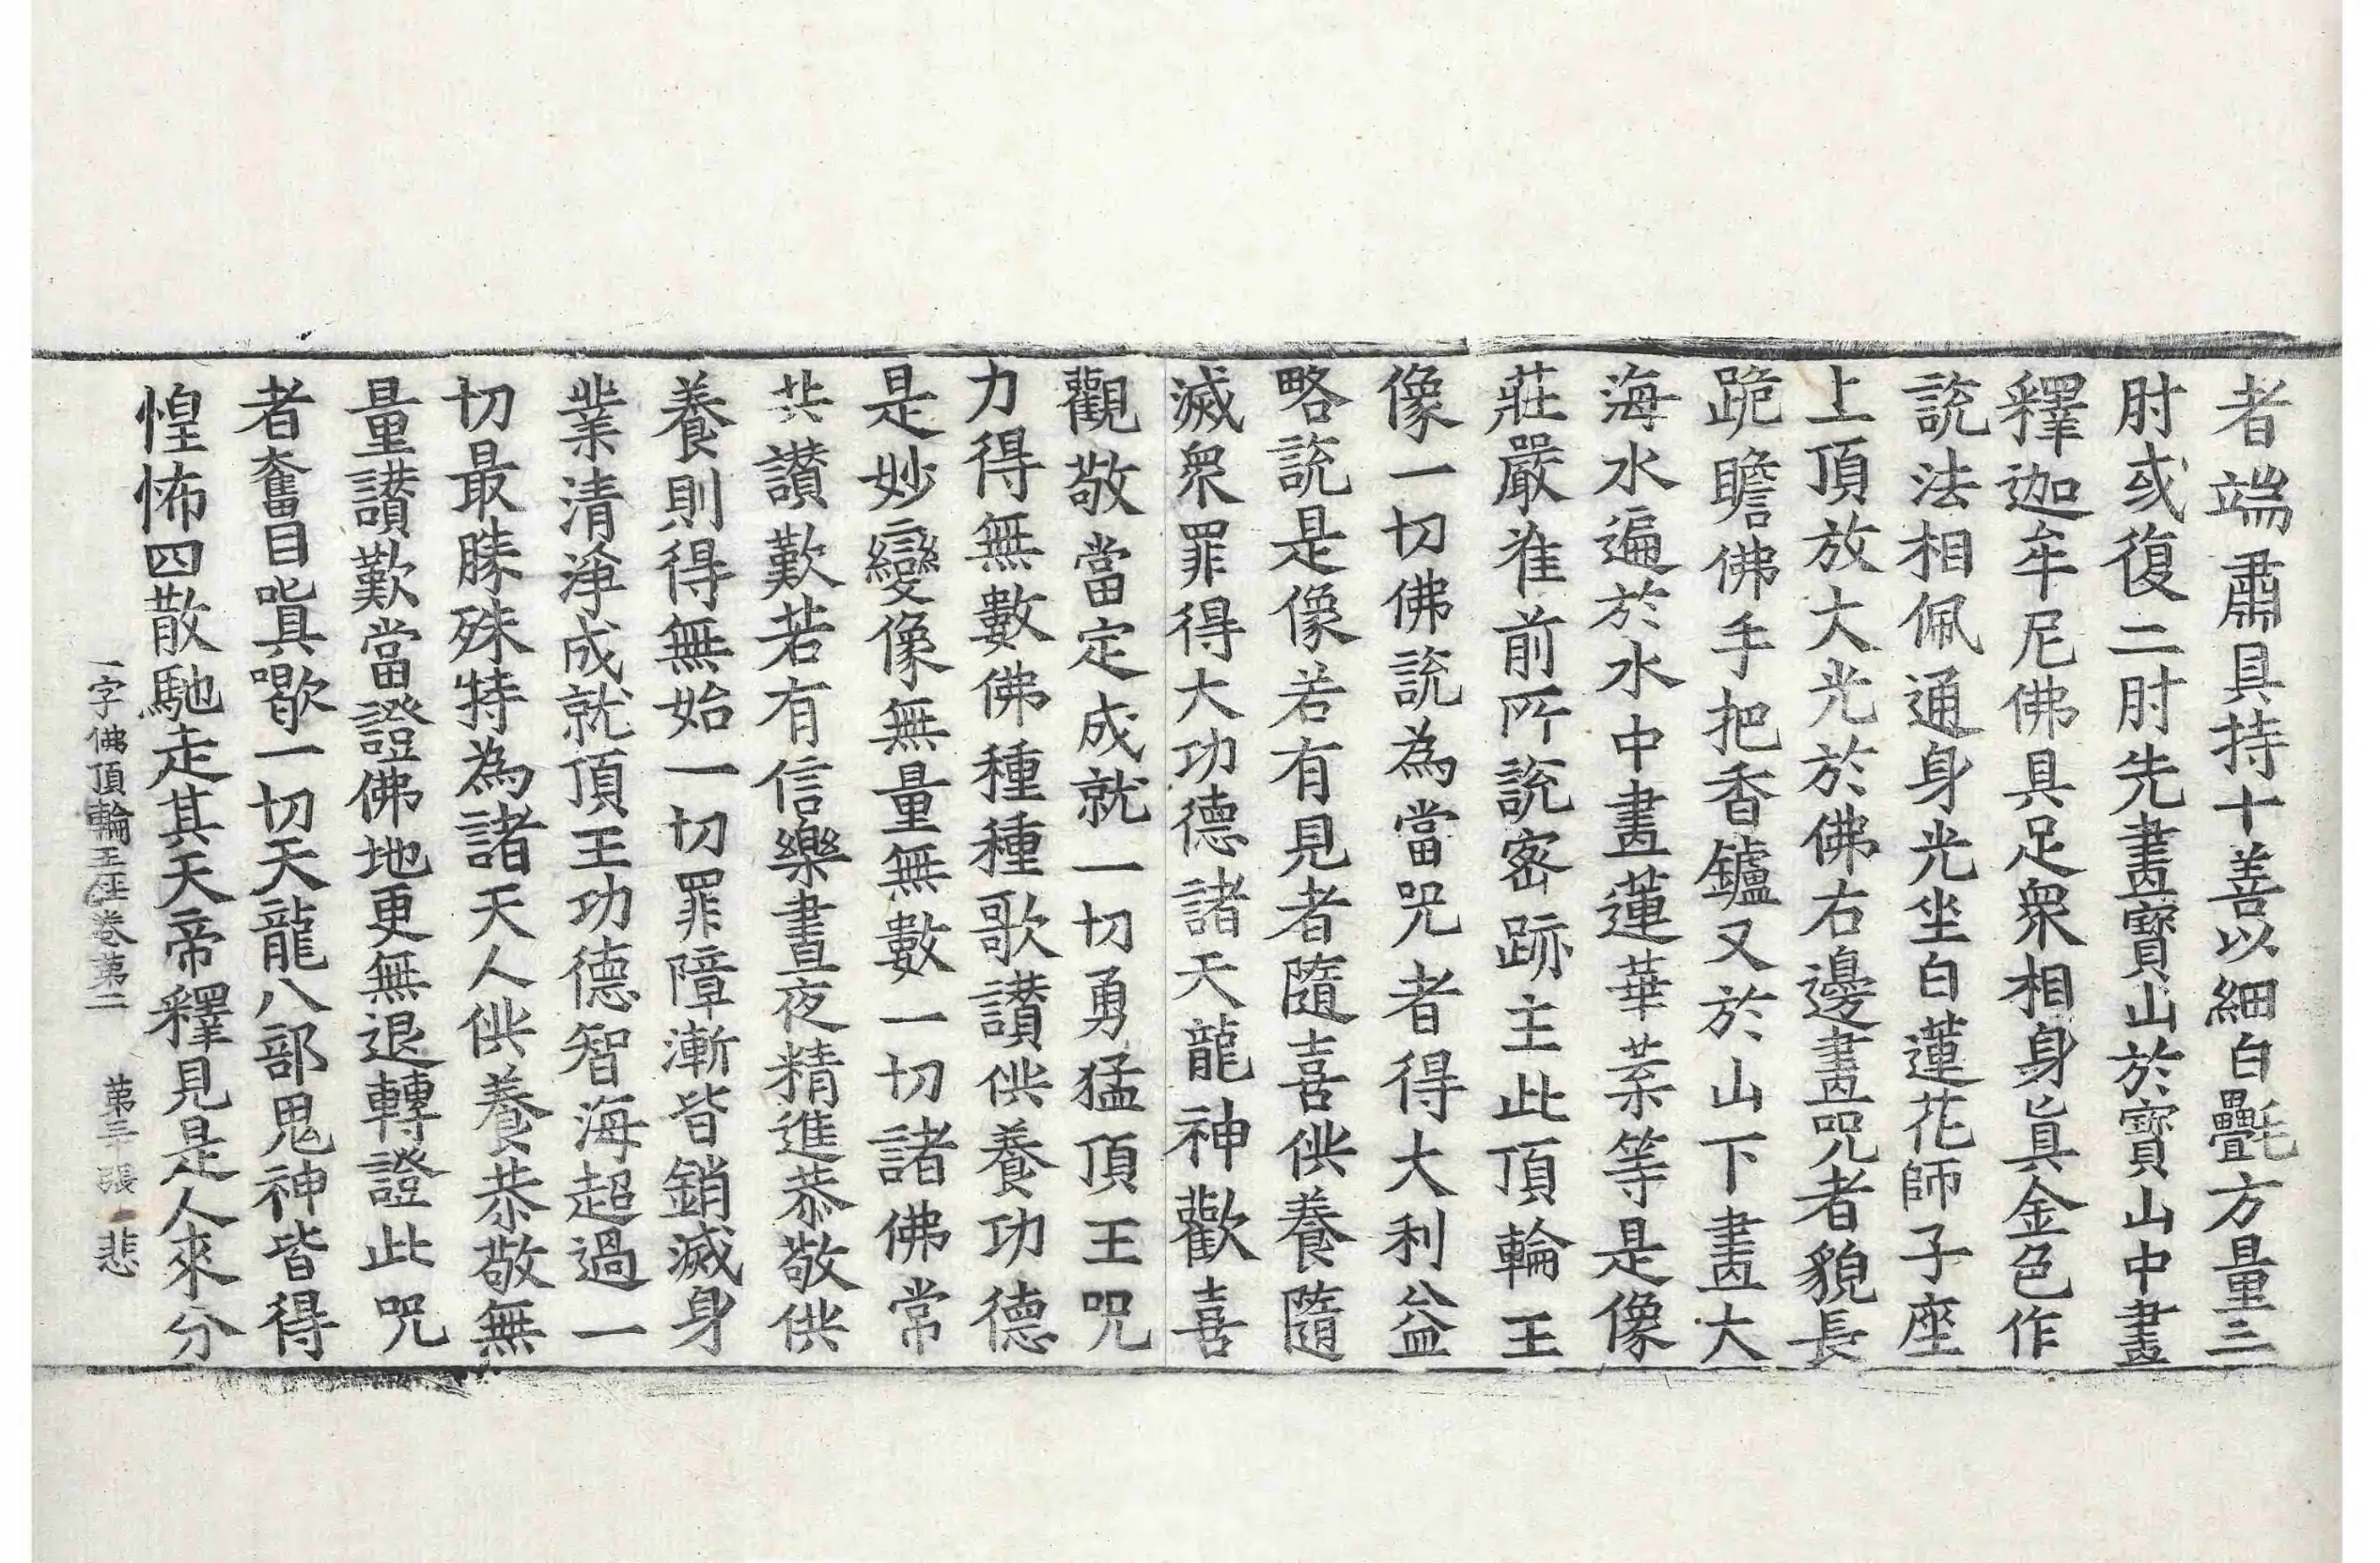 者端肅具持十善以細白㲲方量三
肘或復二肘先畫寶山於寶山中畫
釋迦牟尼佛具足衆相身真金色作
説法相佩通身光坐白蓮花師子座
上頂放大光於佛右邊畫咒者貌長
跪瞻佛手把香鑪又於山下畫大
海水遍於水中畫蓮華葉等是像
莊嚴准前所説密跡主此頂輪王
像一切佛説為當咒者得大利益
略説是像若有見者隨喜供養隨
滅衆罪得大功德諸天龍神歡喜
觀敬當定成就一切勇猛頂王咒
力得無數佛種種歌讃供養功德
是妙變像無量無數一切諸佛常
共讃歎若有信樂晝夜精進恭敬供
養則得無始一切罪障漸皆銷滅身
業清淨成就頂王功德智海超過一
切最勝殊特為諸天人供養恭敬無
量讃歎當證佛地更無退轉證此咒
者奮目嗔歇一切天龍八部鬼神皆得
惶怖四散馳走其天帝釋見是人來分
一字佛頂輪王経卷第二 第三張 悲